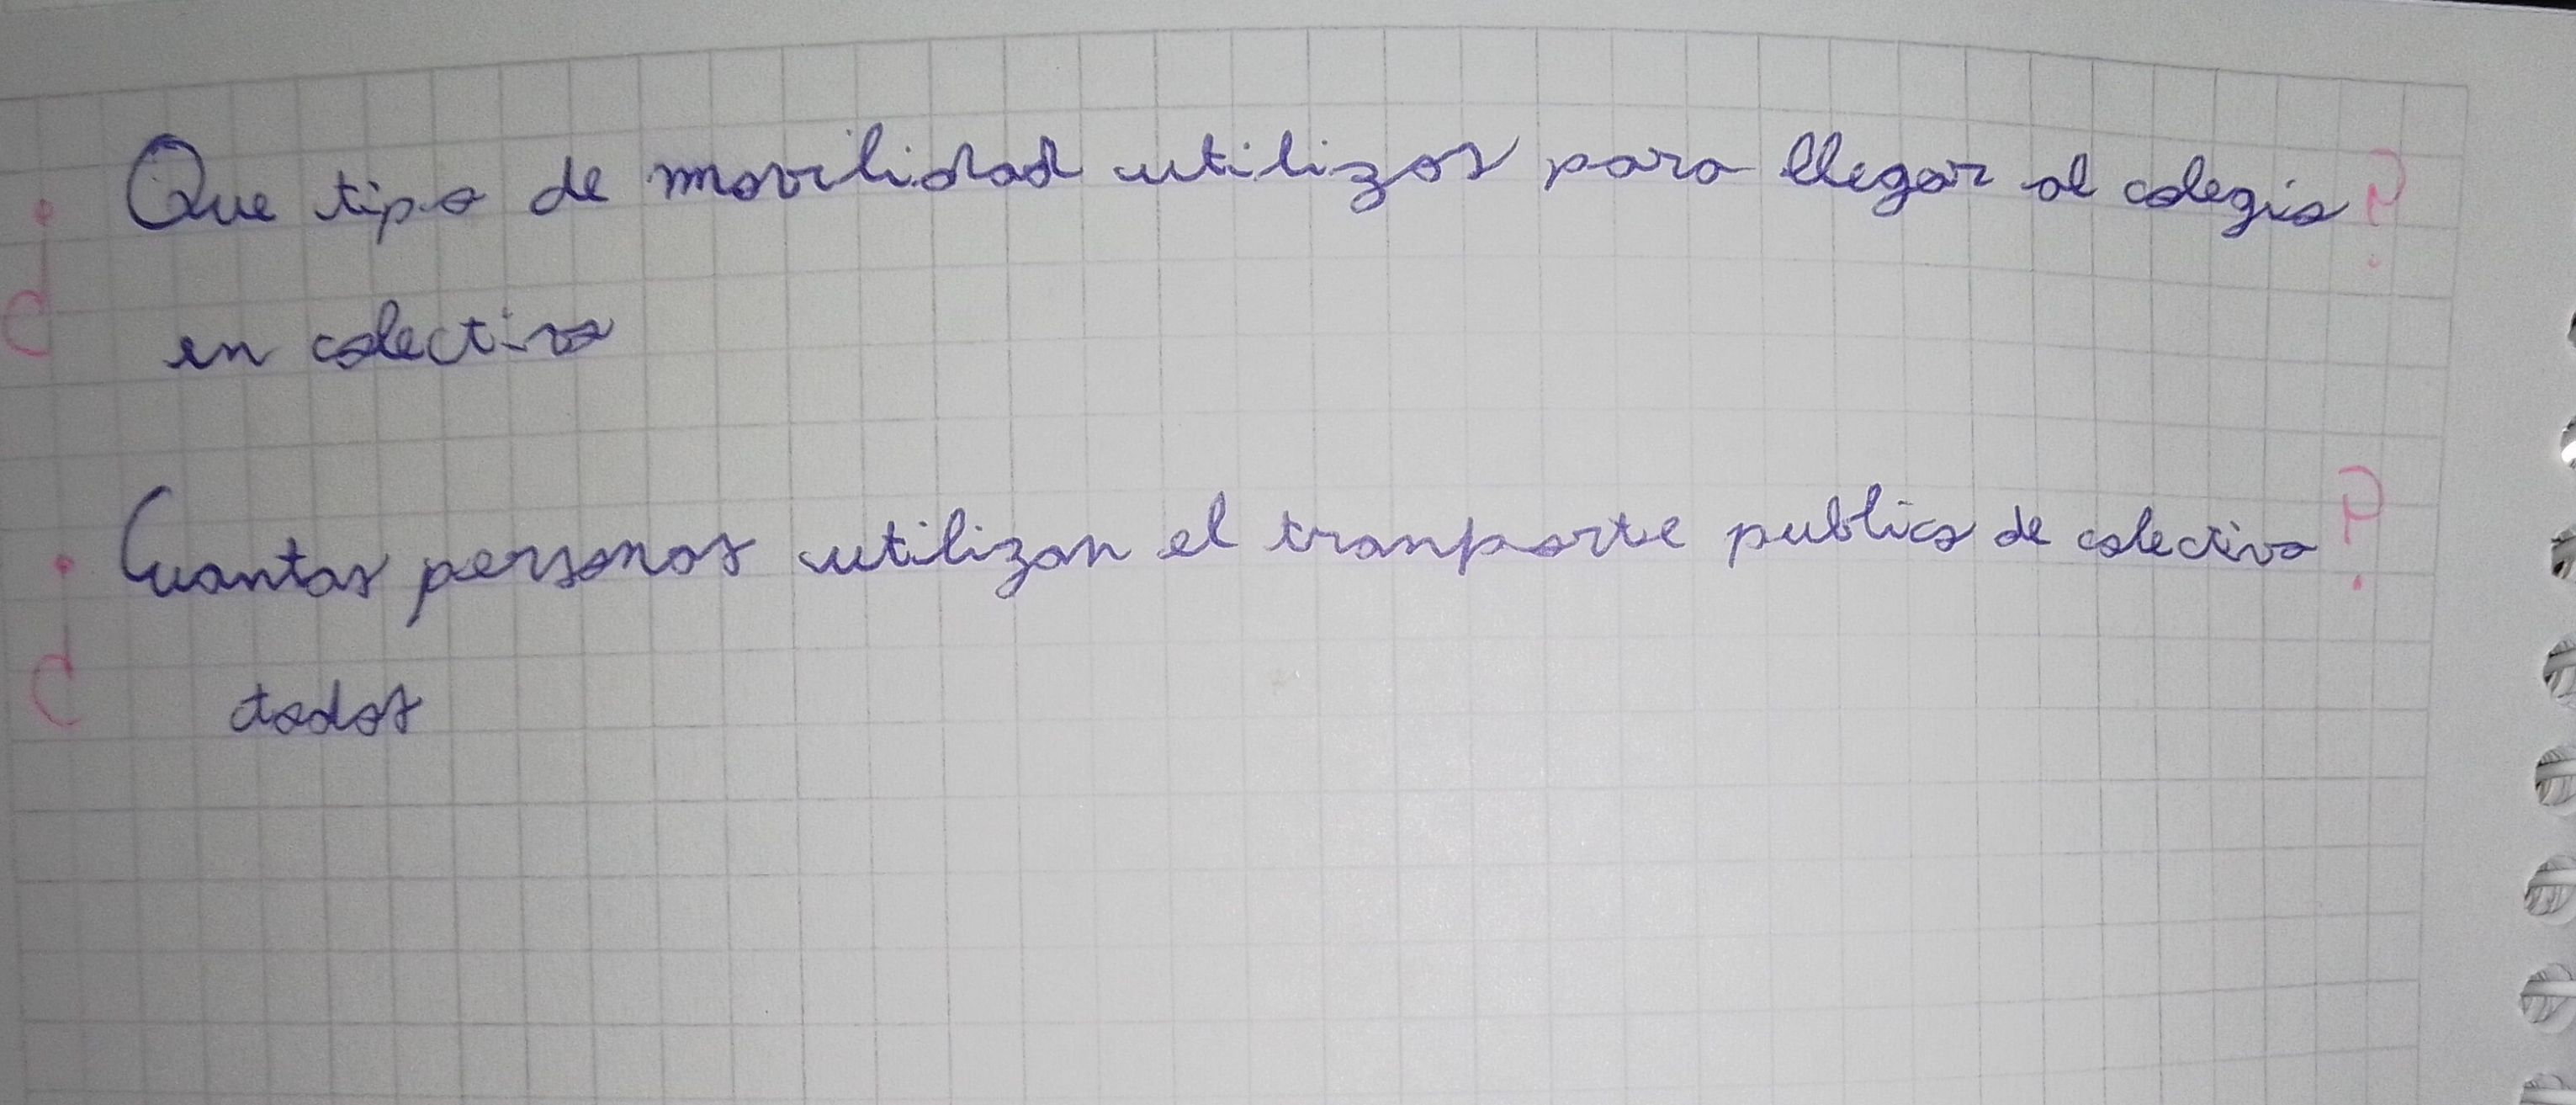 ¿Que tipo de movilidad utilizas para llegar al colegio?
en colectivo
¿Cuantas personas utilizan el tranporte publico de colectivo?
todos